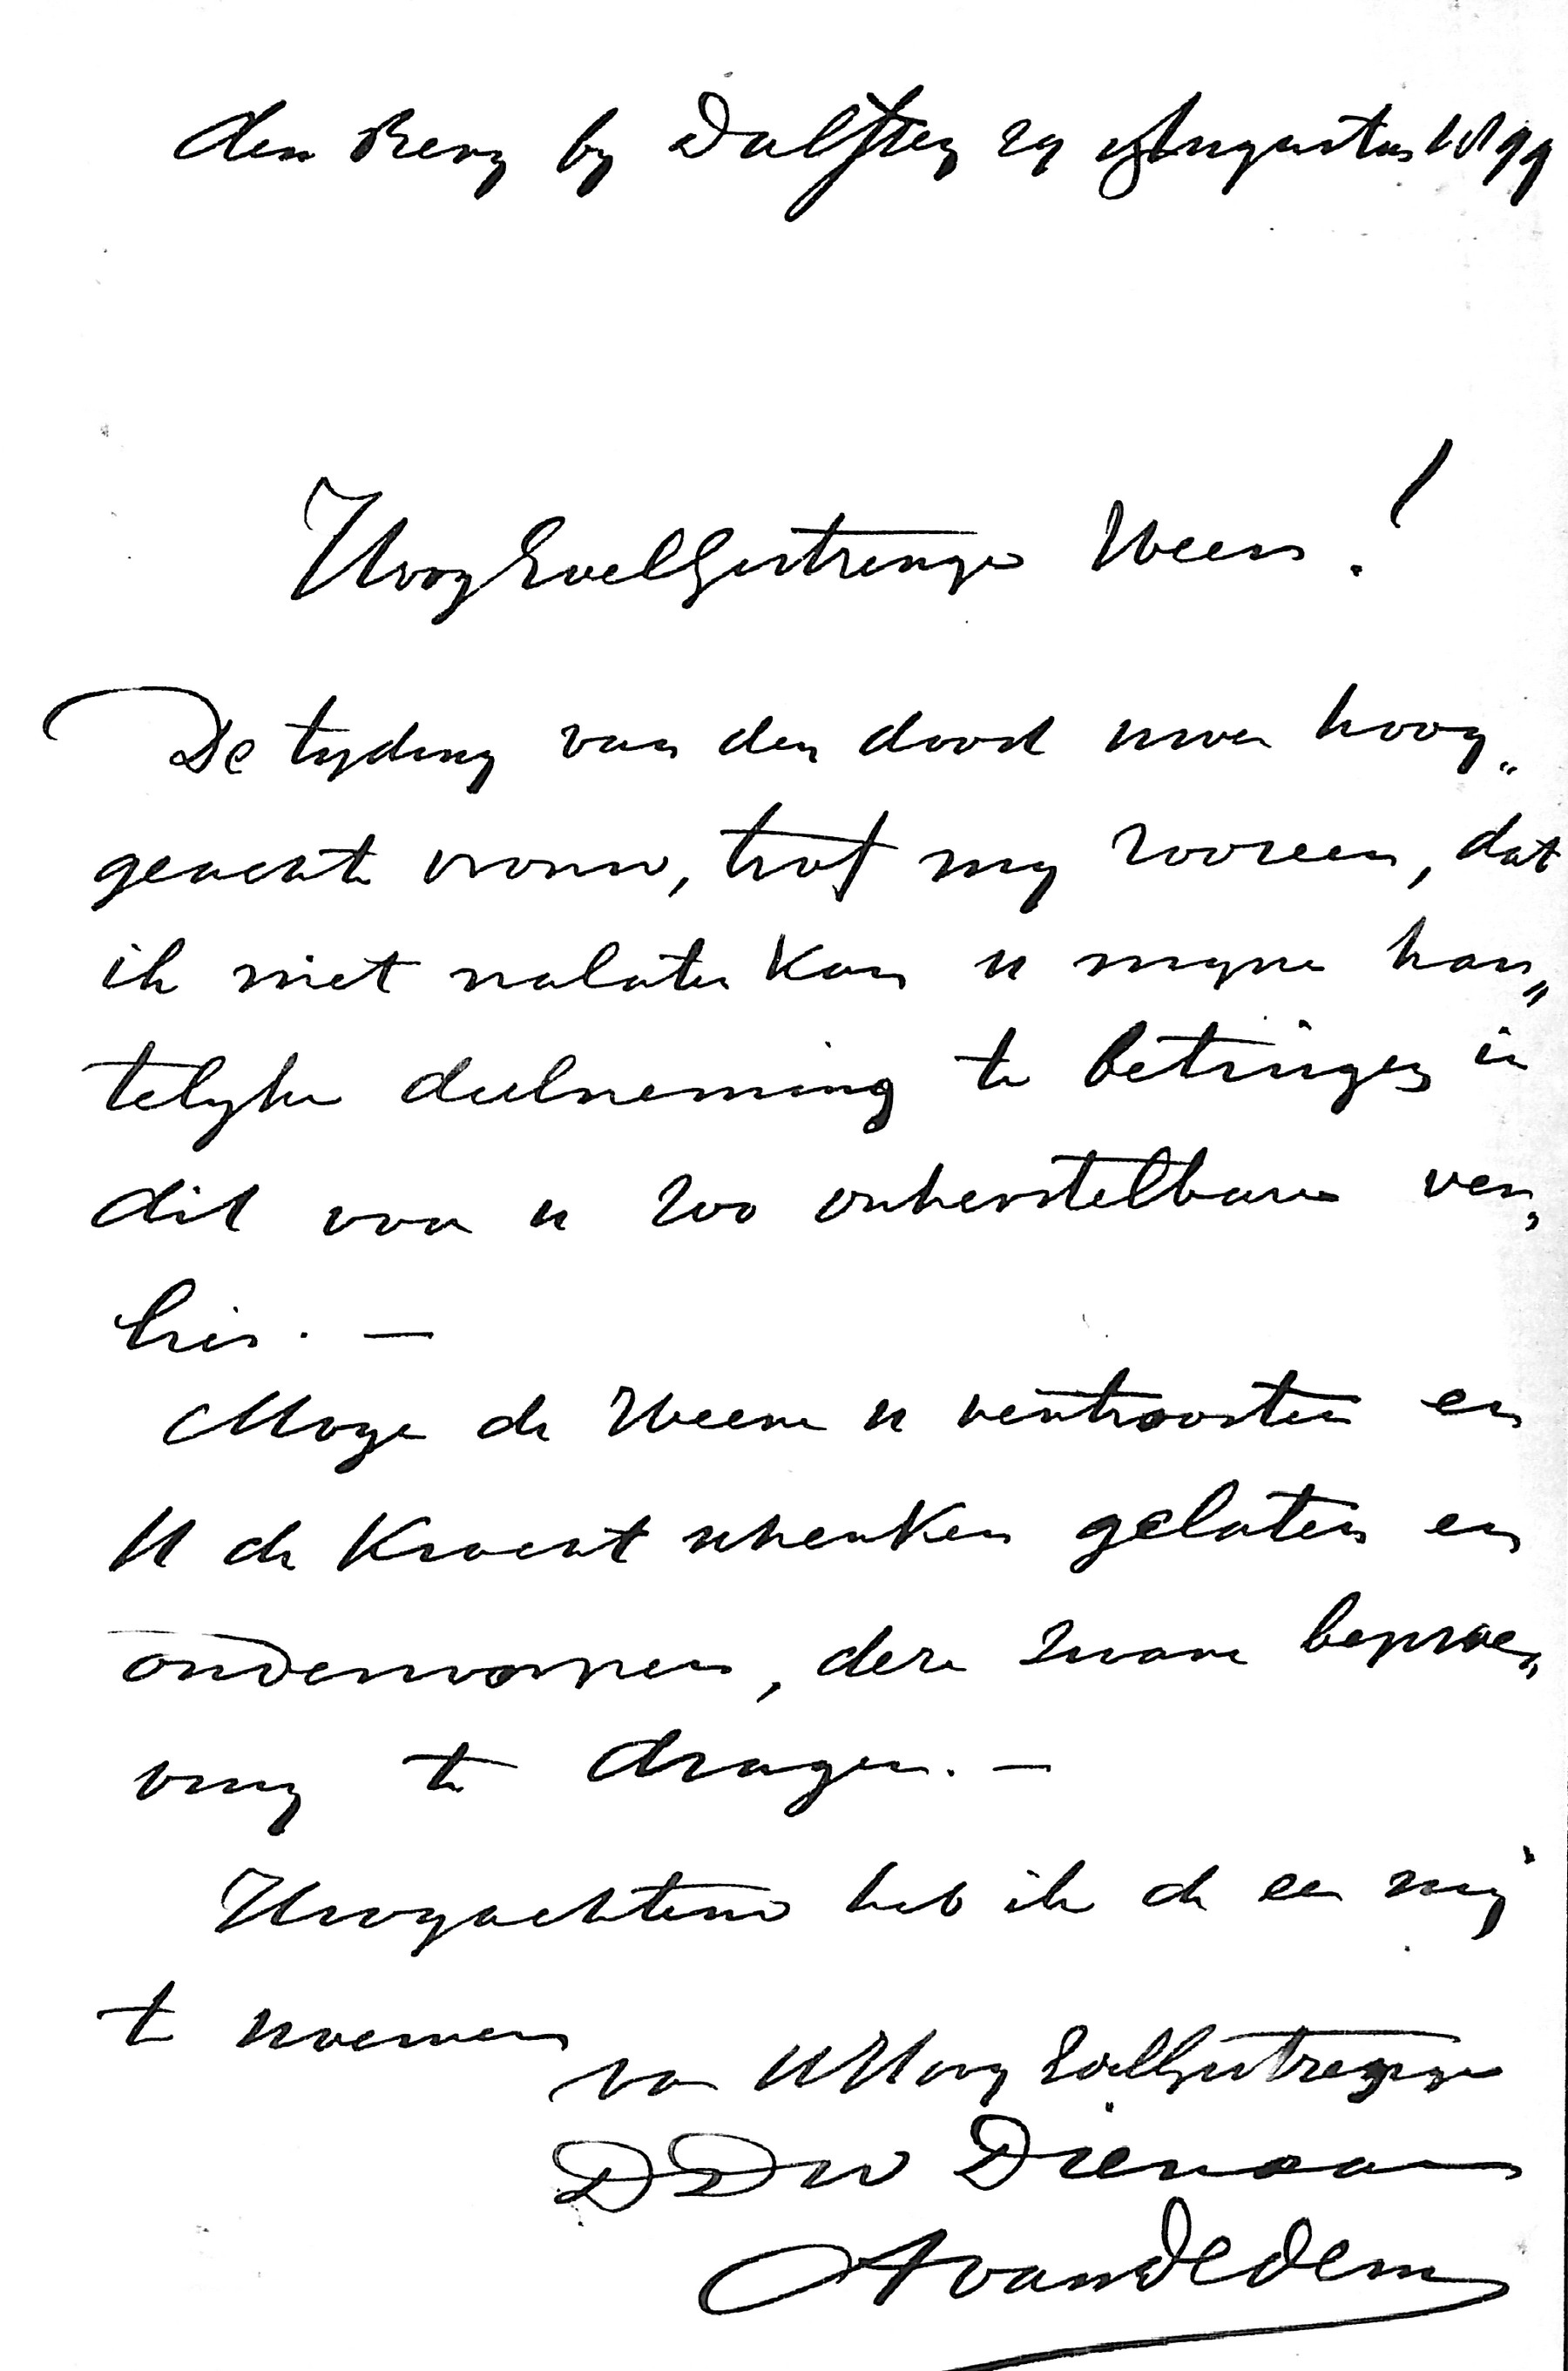 den Berg by Dalfsen 29 Augustus 1899
HoogEdelGestrenge Heer!
De tyding van den dood uwer hoog„
geachte vrouw, trof my zoozeer, dat
ik niet nalaten kan u myne har„
telyke deelneming te betuigen in
dit voor u zoo onherstelbare ver„
lies. —
Moge de Heere u vertroosten en
U de kracht schenken gelaten en
onderworpen, deze zware beproe„
ving te dragen. —
Hoogachtend heb ik de eer mij
te noemen
van UHoogEdelGestrenge
D Dw Dienaar
A van Dedem